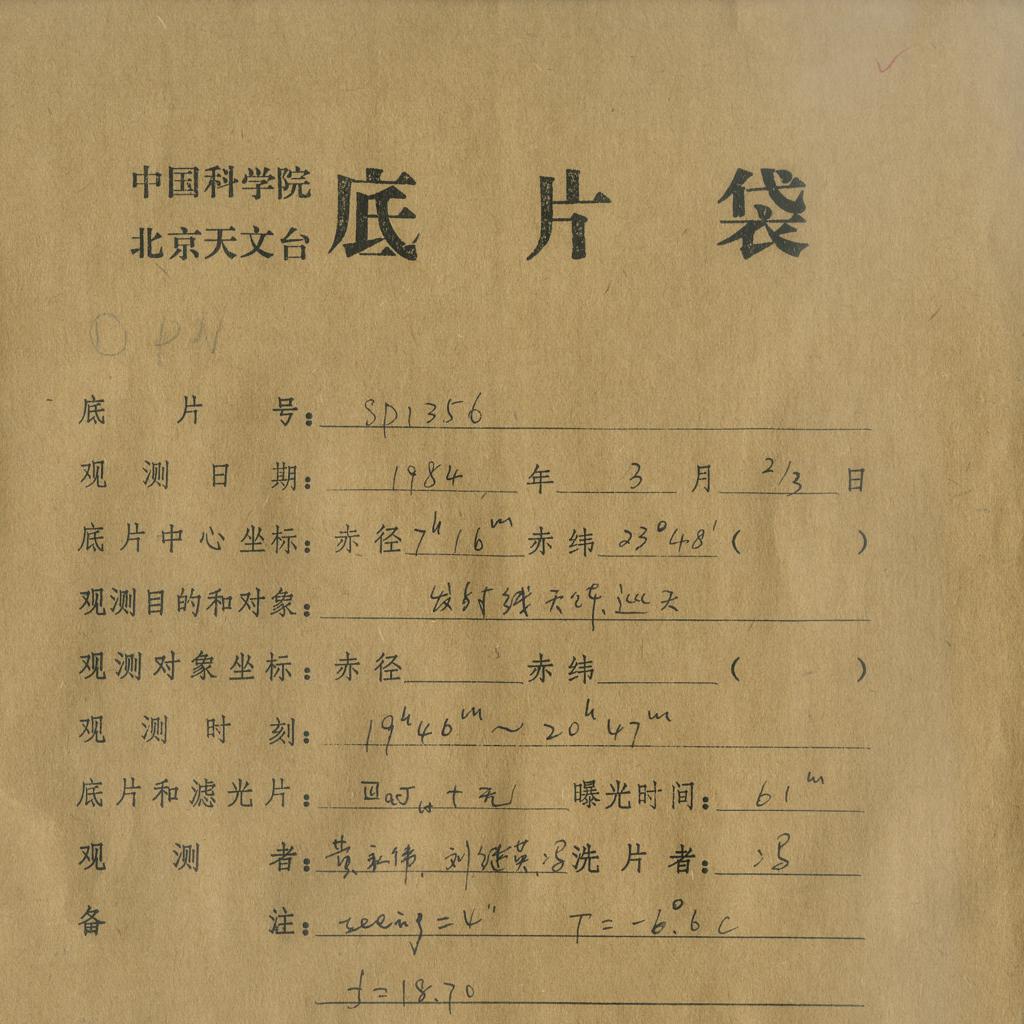 中国科学院
北京天文台
底片袋
PN
底片号：SP1356
观测日期：1984年3月2/3日
底片中心坐标：赤径7h16m赤纬23°48′（ ）
观测目的和对象：发射线天体巡天
观测对象坐标：赤径 赤纬 （ ）
观测时刻：19h46m～20h47m
底片和滤光片：IIaJ + 无 曝光时间：61m
观测者：黄永伟、刘继英、冯 洗片者：冯
备注：seeing=4″ T=-6°.6C
f=18.70